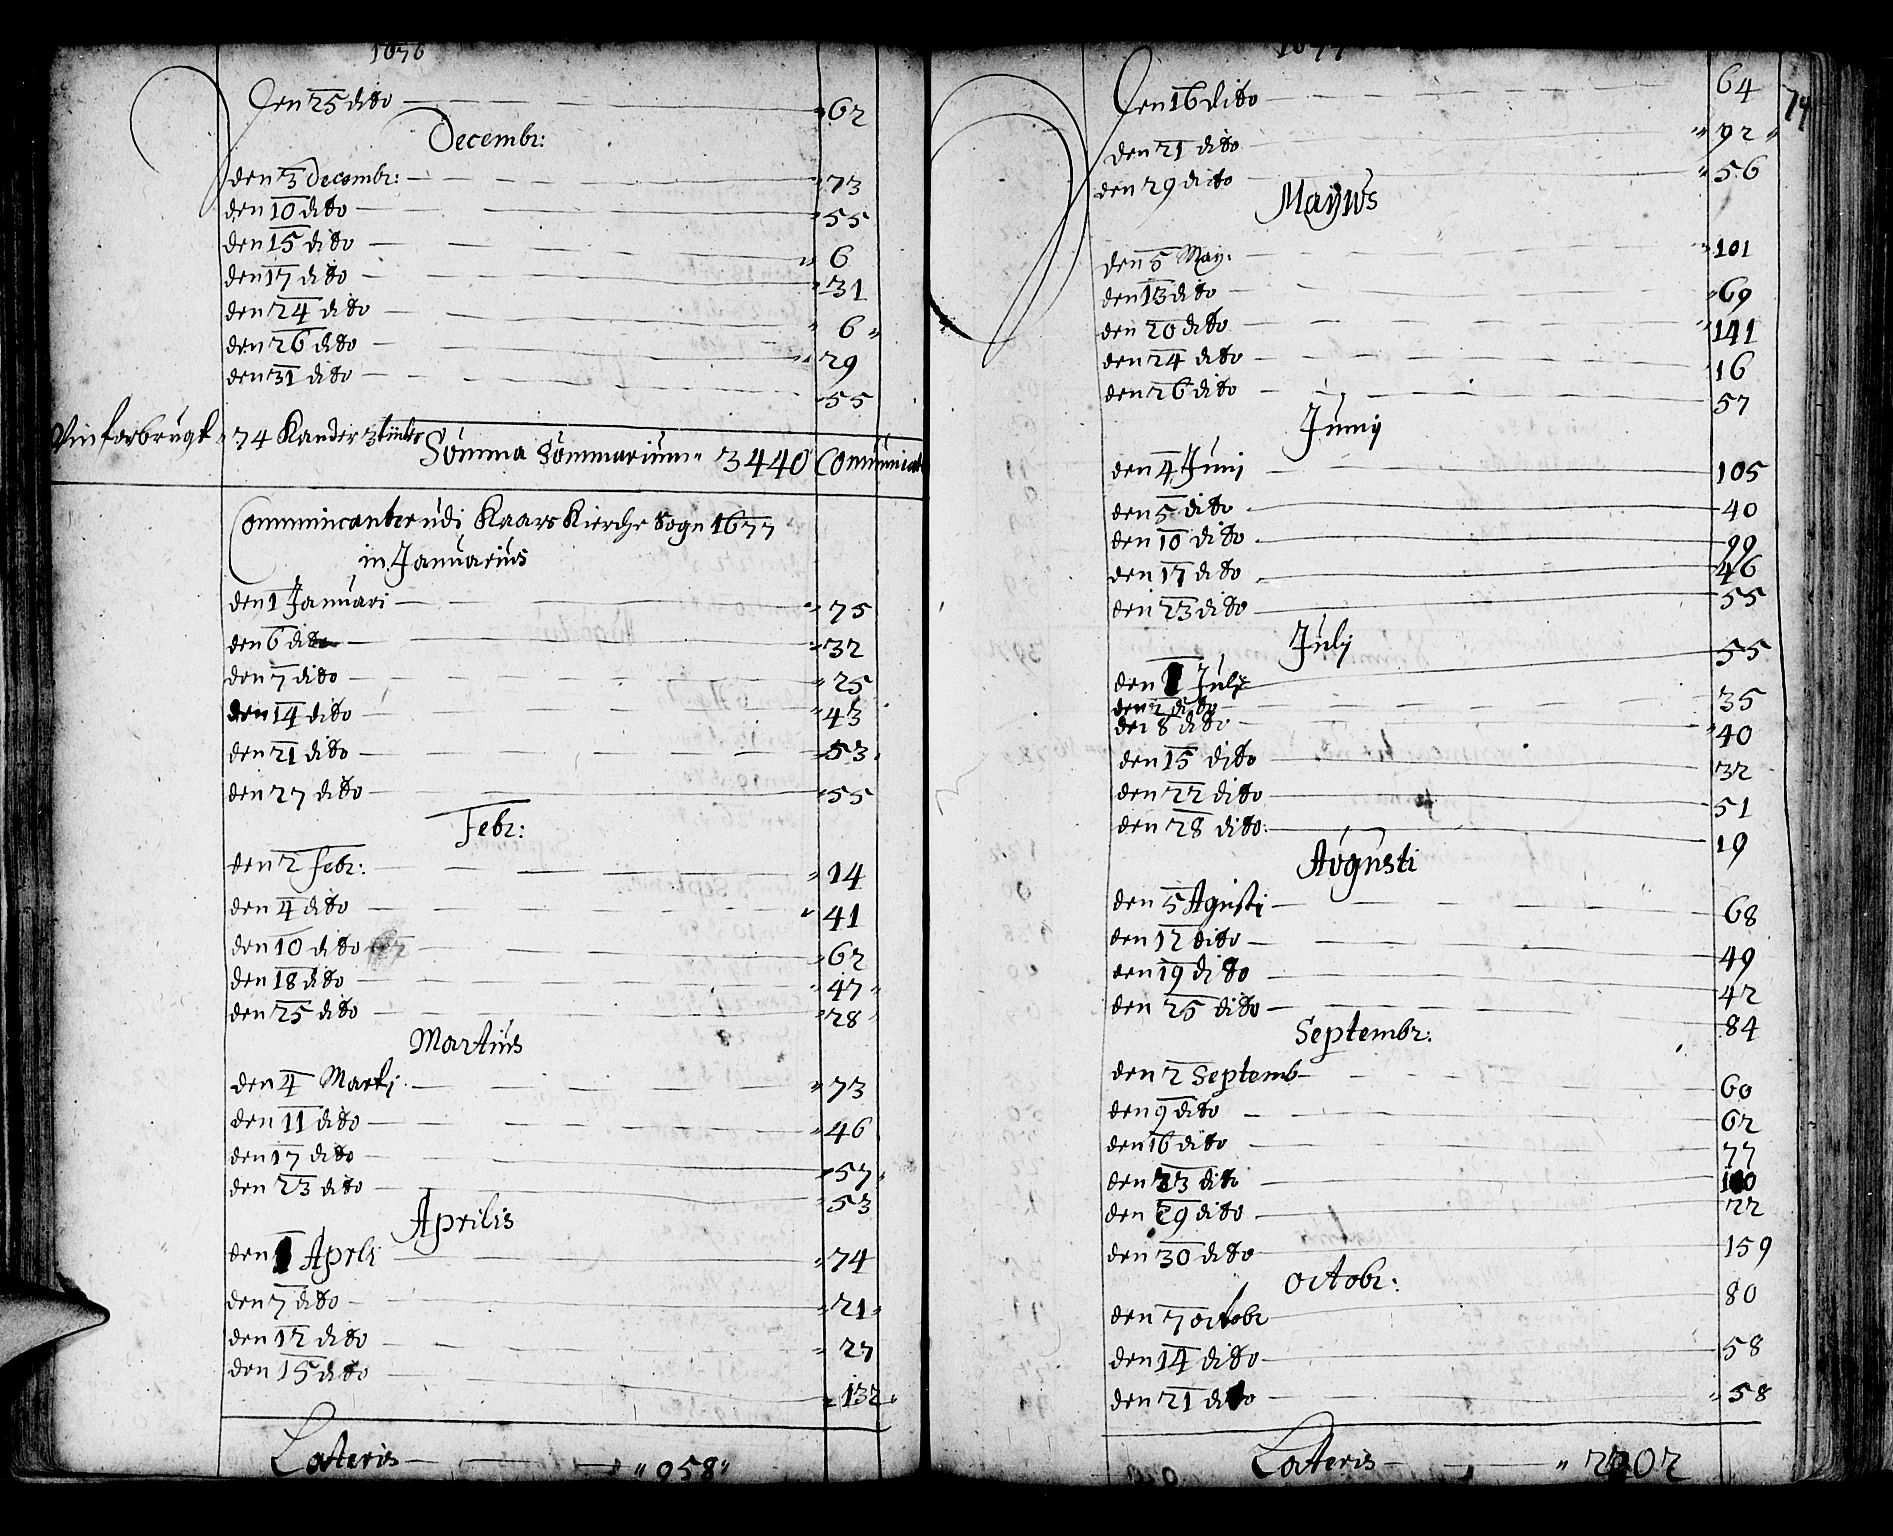 1676
Den 25 dito — 62
Decembr:
den 3 Decembr: — 73
den 10 dito — 55
den 15 dito — 6
den 17 dito — 31
den 24 dito — 6
den 26 dito — 29
den 31 dito — 55
74 Kander 3
Somma Sommarium 3440
Commnincanter udi Kaars Kierche Sogn 1677
in Januarius
den 1 Januari — 75
den 6 dito — 32
den 7 dito — 25
den 14 dito — 43
den 21 dito — 53
den 27 dito — 55
Febr:
den 2 febr: — 14
den 4 dito — 41
den 10 dito — 62
den 18 dito — 47
den 25 dito — 28
Martius
den 4 Martj — 73
den 11 dito — 46
den 17 dito — 57
den 23 dito — 53
Aprilis
den 1 Aprli — 74
den 7 dito — 21
den 12 dito — 27
den 15 dito — 132
Lateris — 958
1677
74
Den 16 dito — 64
den 21 dito — 92
den 29 dito — 56
Mayus
den 5 May: — 101
den 13 dito — 69
den 20 dito — 141
den 24 dito — 16
den 26 dito — 57
Junij
den 4 Junj — 105
den 5 dito — 40
den 10 dito — 99
den 17 dito — 46
den 23 dito — 55
July
den 1 July — 55
den 2 dito — 35
den 8 dito — 40
den 15 dito — 32
den 22 dito — 51
den 28 dito — 19
Avgusti
den 5 Agusti — 68
den 12 dito — 49
den 19 dito — 42
den 25 dito — 84
Septembr:
den 2 Septemb — 60
den 9 dito — 62
den 16 dito — 77
den 23 dito — 110
den 29 dito — 22
den 30 dito — 159
Octobr:
den 7 octobr — 80
den 14 dito — 58
den 21 dito — 58
Lateris — 2202